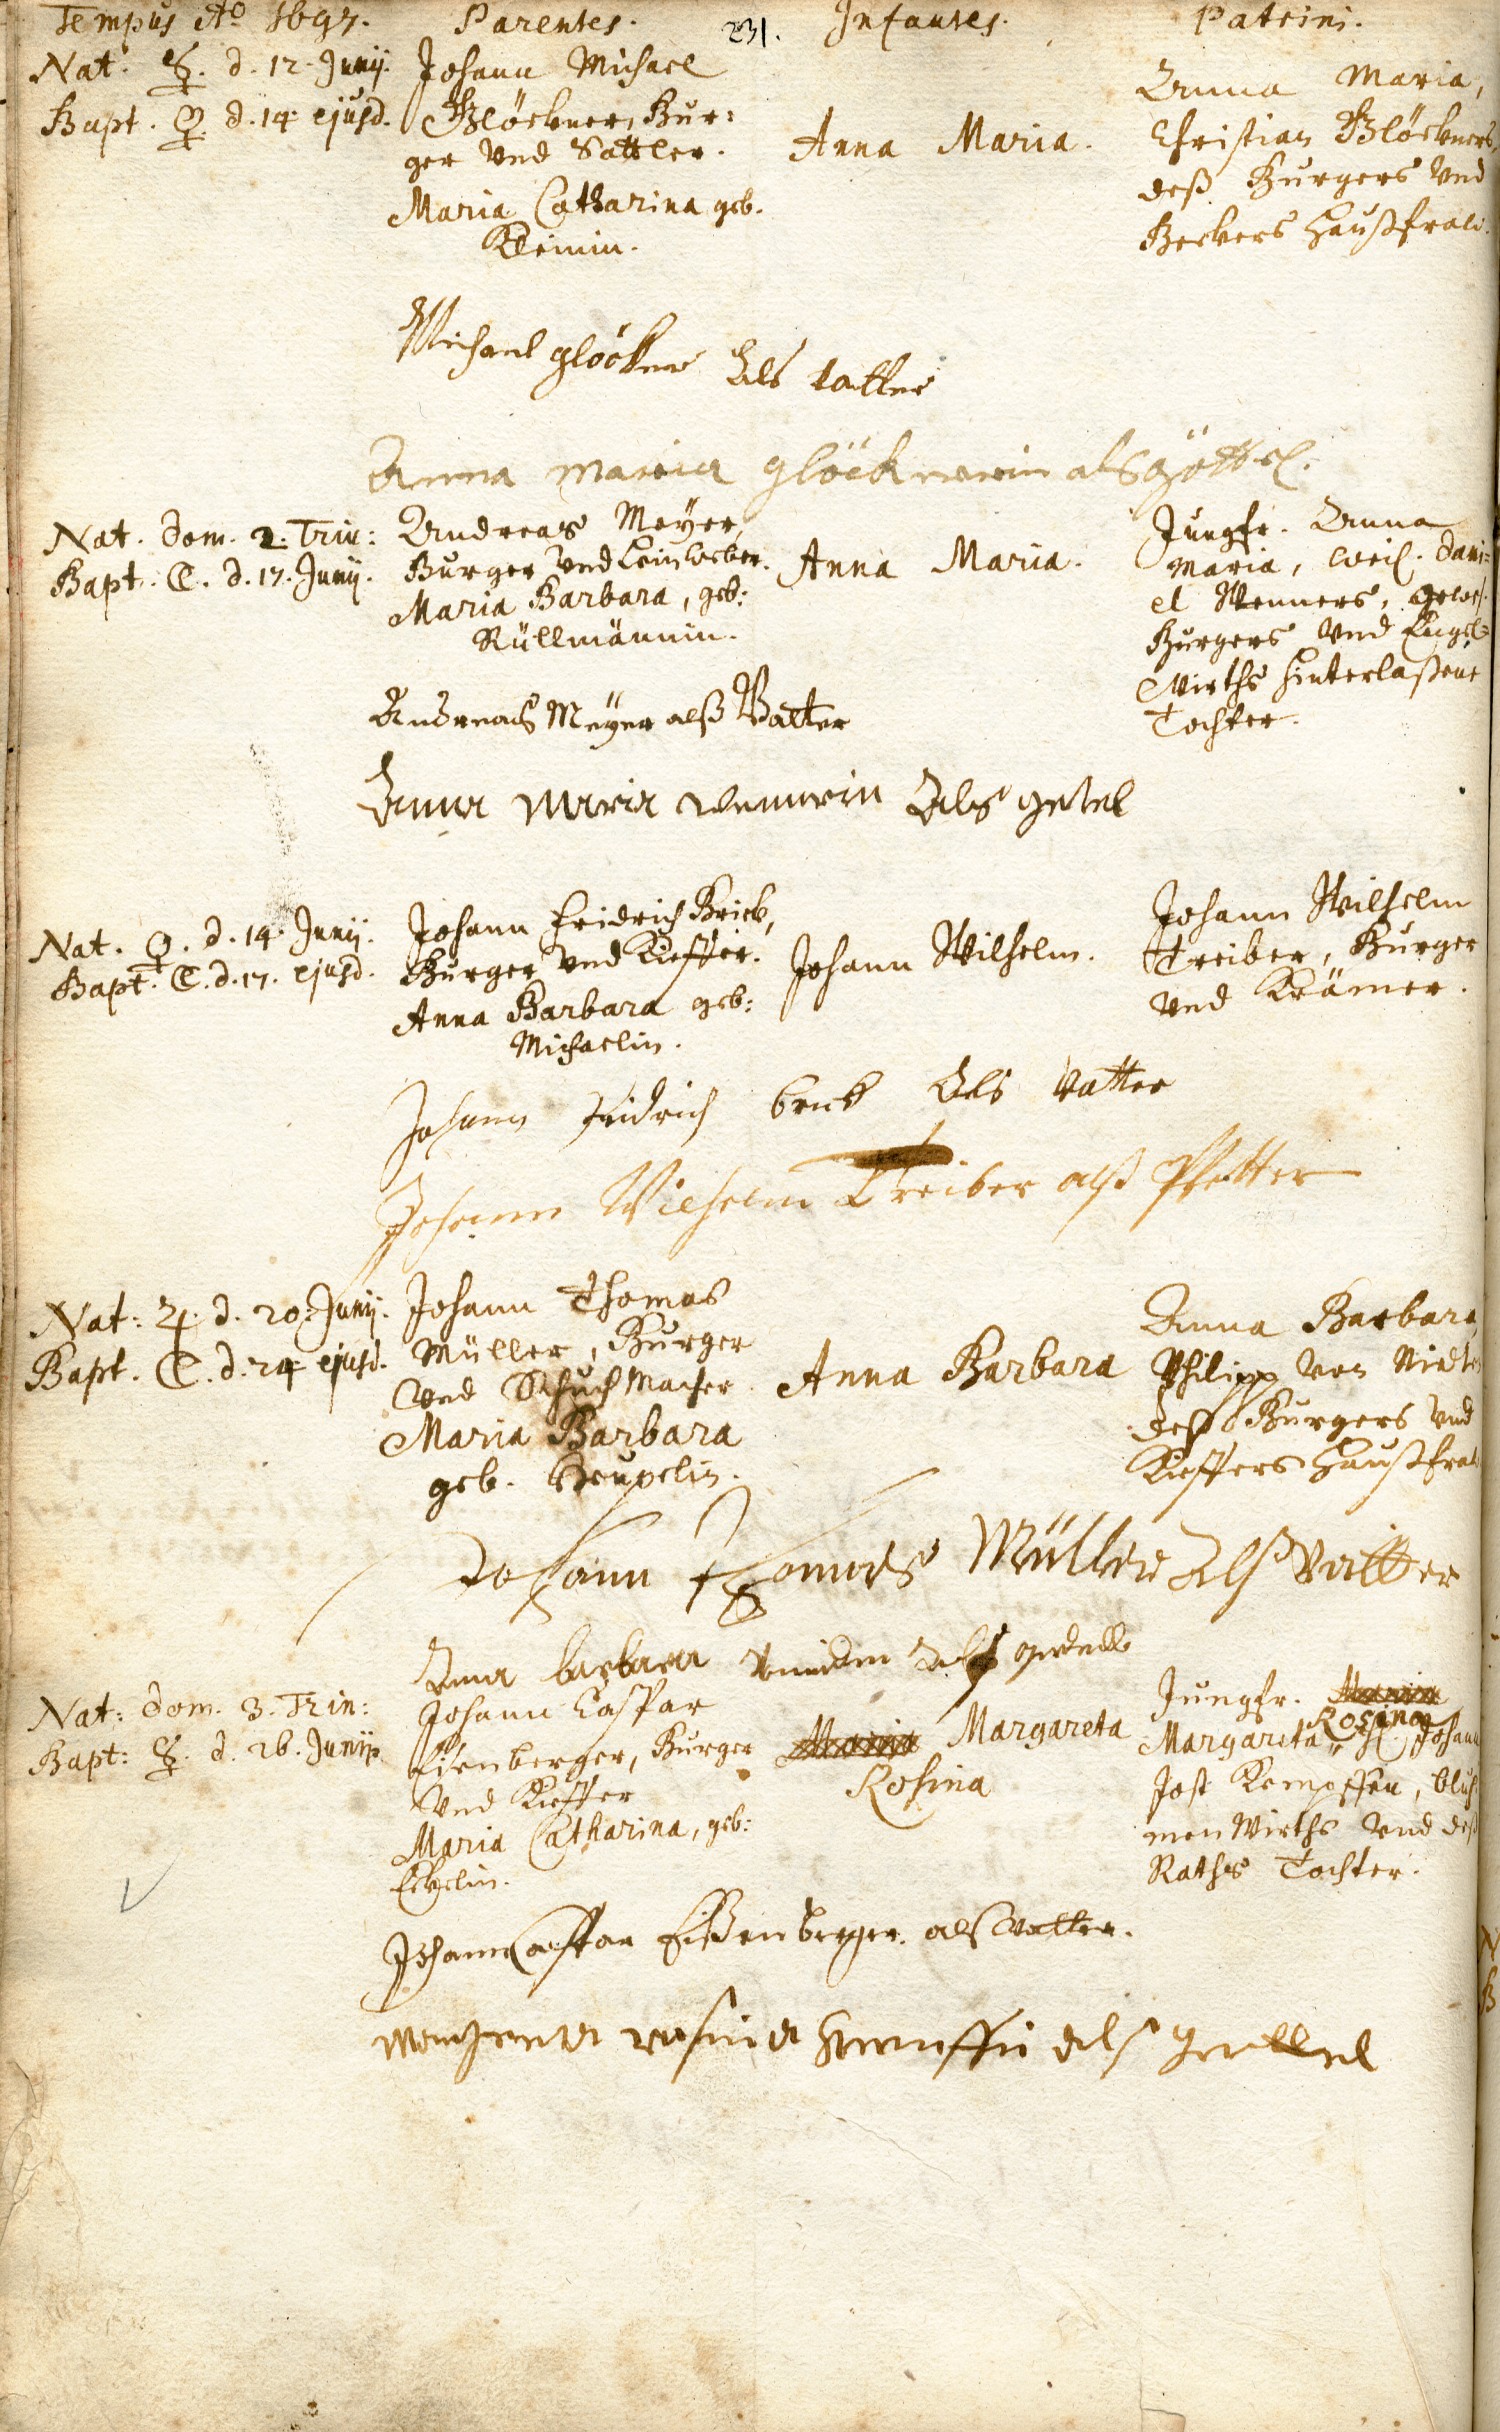 Tempus Ao 1697.
Parentes.
231.
Infantes.
Patrini.
Nat. ☿. d. 12. Junij.
Bapt. ♀. d. 14. ejusd.
Johann Michael
Glöckner, Bur:
ger Vnd Sattler.
Maria Catharina geb.
Kleinin.
Anna Maria.
Anna Maria,
Christian Glöckners,
deß Burgers Vnd
Beckers Haußfrau.
Michael glöckner Als Vatter
Anna maria glöcknerin als göttel.
Nat. Dom. 2. Trin:
Bapt. ☾. d. 17. Junij.
Andreas Meyer,
Burger Vnd Leinweber.
Maria Barbara, geb:
Rüllmännin.
Anna Maria.
Jungfr. Anna
Maria, weil. Dani=
el Wenners, gewes.
Burgers Vnd Engel=
Wirths hinterlaßene
Tochter.
Andreas Meyer alß Vatter
Anna Maria wennerin Als getel
Nat. ♀. d. 14. Junij.
Bapt. ☾. d. 17. ejusd.
Johann Fridrich Brick,
Burger Vnd Kieffer.
Anna Barbara geb:
Michaelin.
Johann Wilhelm.
Johann Wilhelm
Treiber, Burger
Vnd Krämer.
Johann Fridrich brick Als Vatter
Johann Wilhelm Treiber alß Pfetter
Nat: ♃. d. 20. Junij.
Bapt. ☾. d. 24 ejusd.
Johann Thomas
Müller, Burger
Vnd Schuchmacher.
Maria Barbara
geb. Heupelin.
Anna Barbara
Anna Barbara,
Philipp Von
deß Burgers Vnd
Kieffers Haußfrau
Johann Thomas Müller Alß Vatter
Anna barbara Als
Nat: Dom. 3. Trin:
Bapt: ☿. d. 26. Junij.
Johann Caspar
Eisenberger, Burger
Vnd Kieffer
Maria Catharina, geb:
Eckelin.
Maria Margareta
Rosina
Jungfr. Maria
Rosina
Margareta, H. Johann
Jost Kempffen, Bluh=
men Wirths Vnd deß
Raths Tochter.
Johann Caspar Eißenberger. als Vatter.
Margareta rosina als